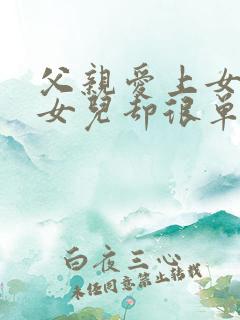 父親愛上女
女兒却很單
白夜三心
未经同意禁止转载